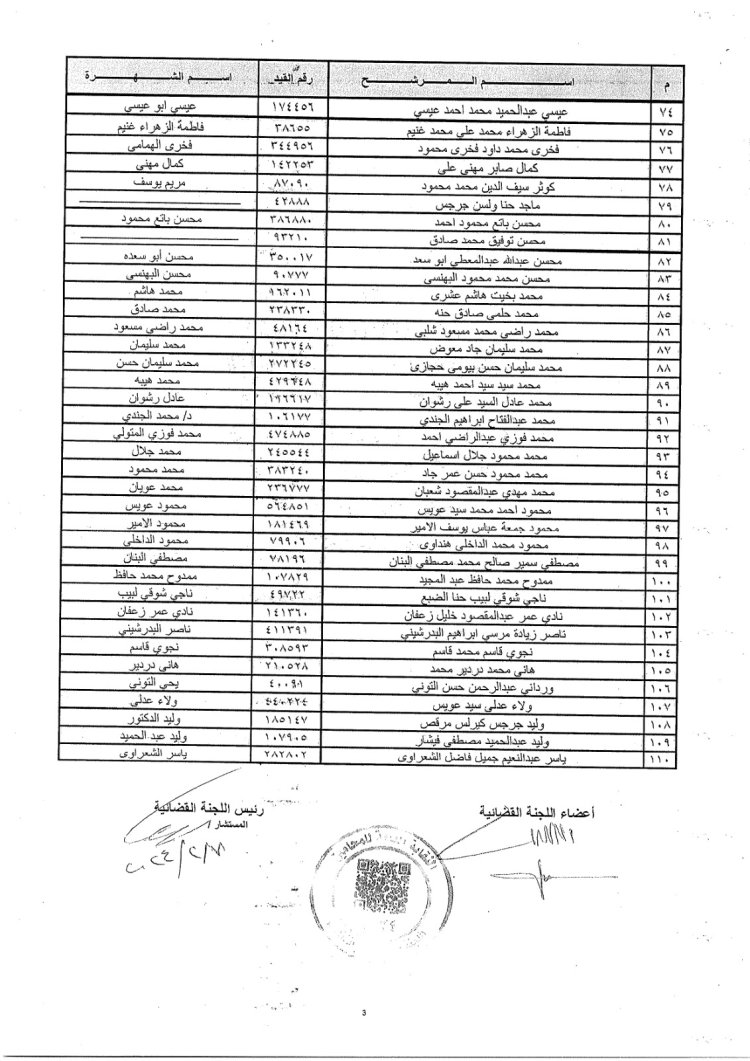 م اســم الــمــرشــح رقم القيد اســم الشــهــرة
٧٤ عيسي عبدالحميد محمد احمد عيسي ١٧٤٤٥٦ عيسي ابو عيسي
٧٥ فاطمة الزهراء محمد علي محمد غنيم ٣٨٦٥٥ فاطمة الزهراء غنيم
٧٦ فخرى محمد داود فخرى محمود ٣٤٤٩٥٦ فخري الهمامى
٧٧ كمال صابر مهنى على ١٤٢٢٥٣ كمال مهنى
٧٨ كوثر سيف الدين محمد محمود ٨٧٠٩٠ مريم يوسف
٧٩ ماجد حنا ولسن جرجس ٤٢٨٨٨
٨٠ محسن باتع محمود احمد ٣٨٦٨٨٠ محسن باتع محمود
٨١ محسن توفيق محمد صادق ٩٣٢١٠
٨٢ محسن عبدالله عبدالمعطي ابو سعد ٣٥٠٠١٧ محسن أبو سعده
٨٣ محسن محمد محمود البهنسى ٩٠٧٧٧ محسن البهنسي
٨٤ محمد بخيت هاشم عشرى ٩٦٢٠١١ محمد هاشم
٨٥ محمد حلمي صادق حنه ٢٣٨٣٣٠ محمد صادق
٨٦ محمد راضي محمد مسعود شلبي ٤٨١٦٤ محمد راضي مسعود
٨٧ محمد سليمان جاد معوض ١٣٣٢٤٨ محمد سليمان
٨٨ محمد سليمان حسن بيومى حجازى ٢٧٢٢٤٥ محمد سليمان حسن
٨٩ محمد سيد سيد احمد هيبه ٤٢٩٦٤٨ محمد هيبه
٩٠ محمد عادل السيد على رشوان ١٩٦٦١٧ عادل رشوان
٩١ محمد عبدالفتاح ابراهيم الجندي ١٠٦١٧٧ د/ محمد الجندي
٩٢ محمد فوزي عبدالراضي احمد ٤٧٤٨٨٥ محمد فوزي المتولي
٩٣ محمد محمود جلال اسماعيل ٢٤٥٥٤٤ محمد جلال
٩٤ محمد محمود حسن عمر جاد ٣٨٣٢٤٠ محمد محمود
٩٥ محمد مهدي عبدالمقصود شعبان ٢٣٦٧٧٧ محمد عوبان
٩٦ محمود احمد محمد سيد عويس ٥٦٤٨٥١ محمود عويس
٩٧ محمود جمعة عباس يوسف الامير ١٨١٤٦٩ محمود الامير
٩٨ محمود محمد الداخلى هنداوى ٧٩٩٠٦ محمود الداخلى
٩٩ مصطفي سمير صالح محمد مصطفي البنان ٧٨١٩٦ مصطفي البنان
١٠٠ ممدوح محمد حافظ عبد المجيد ١٠٧٨٢٩ ممدوح محمد حافظ
١٠١ ناجي شوقي لبيب حنا الضبع ناجي شوقي لبيب
١٠٢ نادي عمر عبدالمقصود خليل زعفان ١٤١٣٦٠ نادي عمر زعفان
١٠٣ ناصر زيادة مرسي ابراهيم البدرشيني ٤١١٣٩١ ناصر البدرشيني
١٠٤ نجوي قاسم محمد قاسم ٣٠٨٥٩٣ نجوي قاسم
١٠٥ هانى محمد دردير محمد ٢١٠٥٢٨ هانى دردير
١٠٦ ورداني عبدالرحمن حسن التوني يحي التوني
١٠٧ ولاء عدلى سيد عويس ولاء عدلى
١٠٨ وليد جرجس كيرلس مرقص ١٨٥١٤٧ وليد الدكتور
١٠٩ وليد عبدالحميد مصطفى فيشار ١٠٧٩٠٥ وليد عبد الحميد
١١٠ ياسر عبدالنعيم جميل فاضل الشعراوى ٢٨٢٨٠٢ ياسر الشعراوى
أعضاء اللجنة القضائية رئيس اللجنة القضائية
المستشار /
3